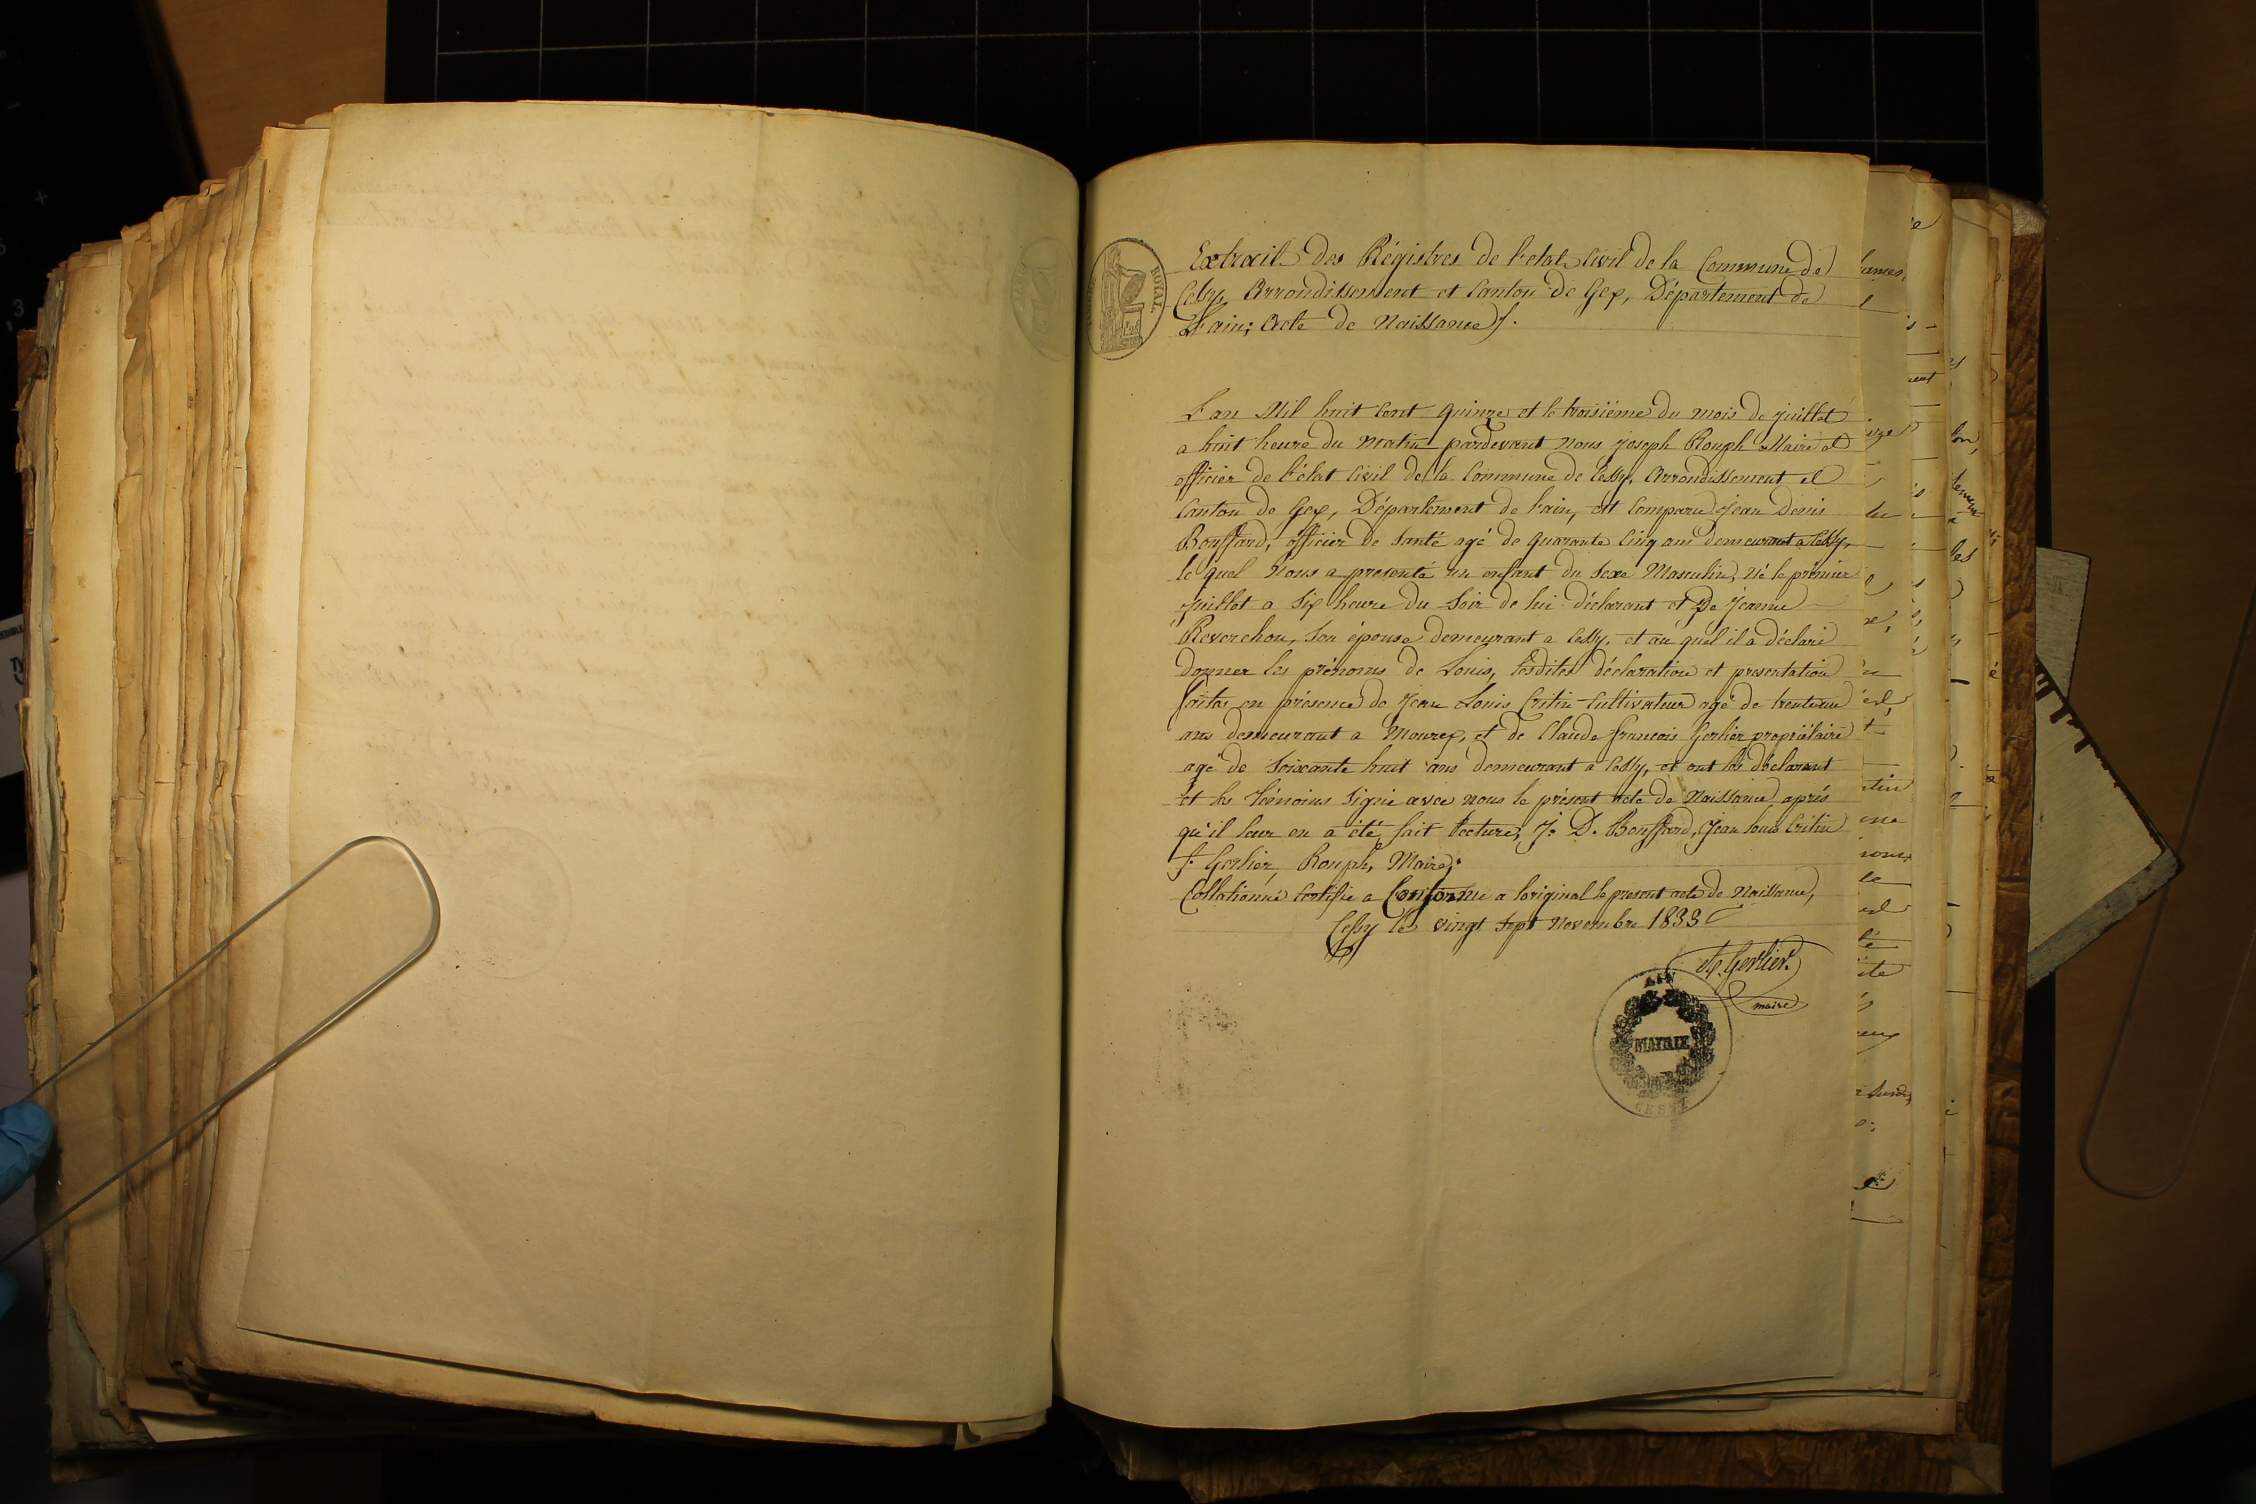 Extrait des Régistres de l'etat Civil de la Commune de
Cessy, Arrondissement et Canton de Gex, Département de
L'ain; Acte de Naissance.
ROYAL
L'an Mil huit Cent quinze et le troisième du mois de juillet
a huit heure du matin pardevant nous joseph Rouph Maire et
officier de l'état Civil de la Commune de Cessy, Arrondissement et
Canton de Gex, Département de l'ain, est Comparu Jean Denis
Bouffard, officier de Santé agé de quarante Cinq ans demeurant a Cessy,
le quel nous a presenté un enfant du Sexe Masculin, né le premier
juillet a Six heure du Soir de lui déclarant et De Jeanne
Reverchon, Son épouse demeurant a Cessy, et au quel il a déclaré
donner les prénoms de Louis, lesdites déclaration et presentation
faites en présence de Jean Louis Critin Cultivateur agé de trente un
ans demeurant a Mourex, et de Claude francois Gerlier propriétaire
agé de Soixante huit ans demeurant a Cessy, et ont les déclarant
et les témoins Signé avec nous le présent acte de Naissance après
qu'il leur en a été fait lecture, J. D. Bouffard, Jean Louis Critin
f. Gerlier, Rouph, Maire,
Collationné Certifié a Conforme a l'original le present acte de Naissance,
Cessy le vingt Sept Novembre 1833
Gerlier.
maire
AIN
MAIRIE
CESSY